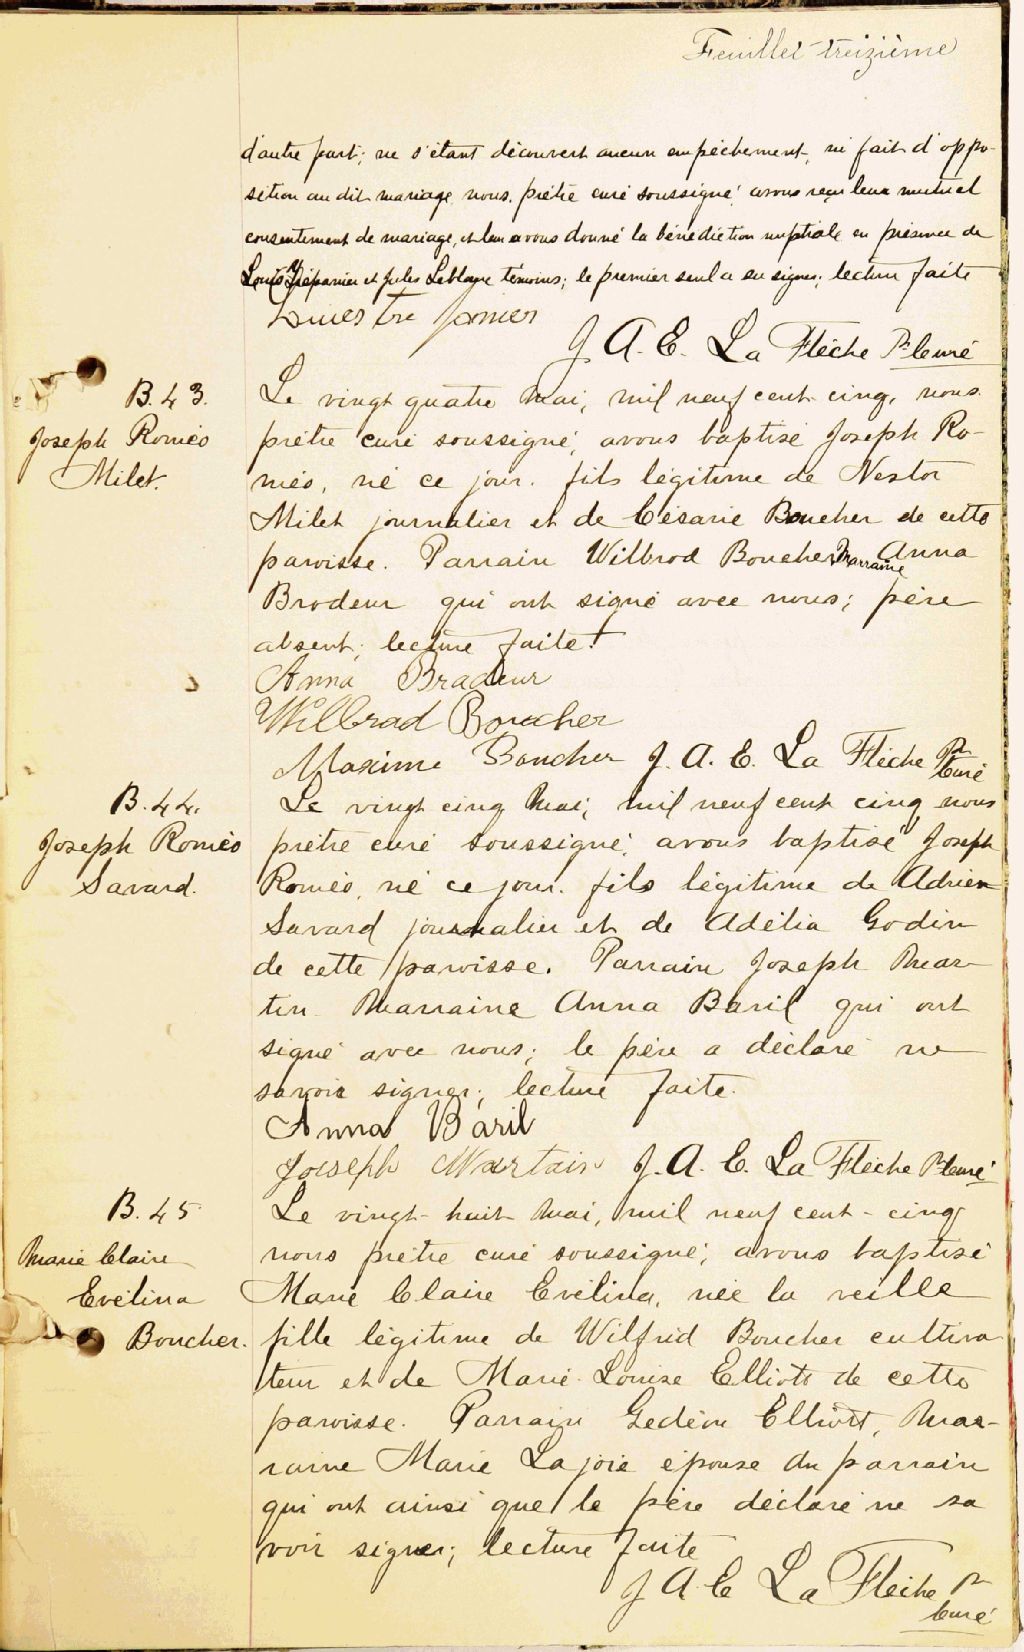 Feuillet treizième
d'autre part; ne s'étant découvert aucun empêchement, ni fait d'oppo-
sition au dit mariage, nous, prêtre curé soussigné, avons reçu leur mutuel
consentement de mariage, et leur avons donné la bénédiction nuptiale en présence de
Louis Trépanier et Jules Leblanc témoins; le premier seul a su signer; lecture faite
Louis Tre panier
J. A. E. La Flèche Ptre Curé
B. 43.
Joseph Roméo
Milet.
Le vingt quatre Mai, mil neuf cent cinq, nous
prêtre curé soussigné, avons baptisé Joseph Ro-
méo, né ce jour, fils légitime de Nestor
Milet journalier et de Césarie Boucher de cette
paroisse. Parrain Wilbrod Boucher Marraine Anna
Brodeur qui ont signé avec nous; père
absent; lecture faite.
Anna Bradeur
Wilbrad Boucher
Maxime Boucher J. A. E. La Flèche Ptre Curé
B. 44.
Joseph Roméo
Savard.
Le vingt cinq Mai, mil neuf cent cinq, nous
prêtre curé soussigné, avons baptisé Joseph
Roméo, né ce jour, fils légitime de Adrien
Savard journalier et de Adélia Godin
de cette paroisse. Parrain Joseph Mar-
tin Marraine Anna Baril qui ont
signé avec nous; le père a déclaré ne
savoir signer; lecture faite.
Anna Baril
Joseph Martain J. A. E. La Flèche Ptre Curé
B. 45
Marie Claire
Evélina
Boucher.
Le vingt-huit Mai, mil neuf cent-cinq
nous prêtre curé soussigné, avons baptisé
Marie Claire Evélina, née la veille
fille légitime de Wilfrid Boucher cultiva
teur et de Marie-Louise Elliott de cette
paroisse. Parrain Gedéon Elliott, Mar-
raine Marie Lajoie épouse du parrain
qui ont ainsi que le père déclaré ne sa
voir signer; lecture faite
J A E La Flèche Ptre
Curé